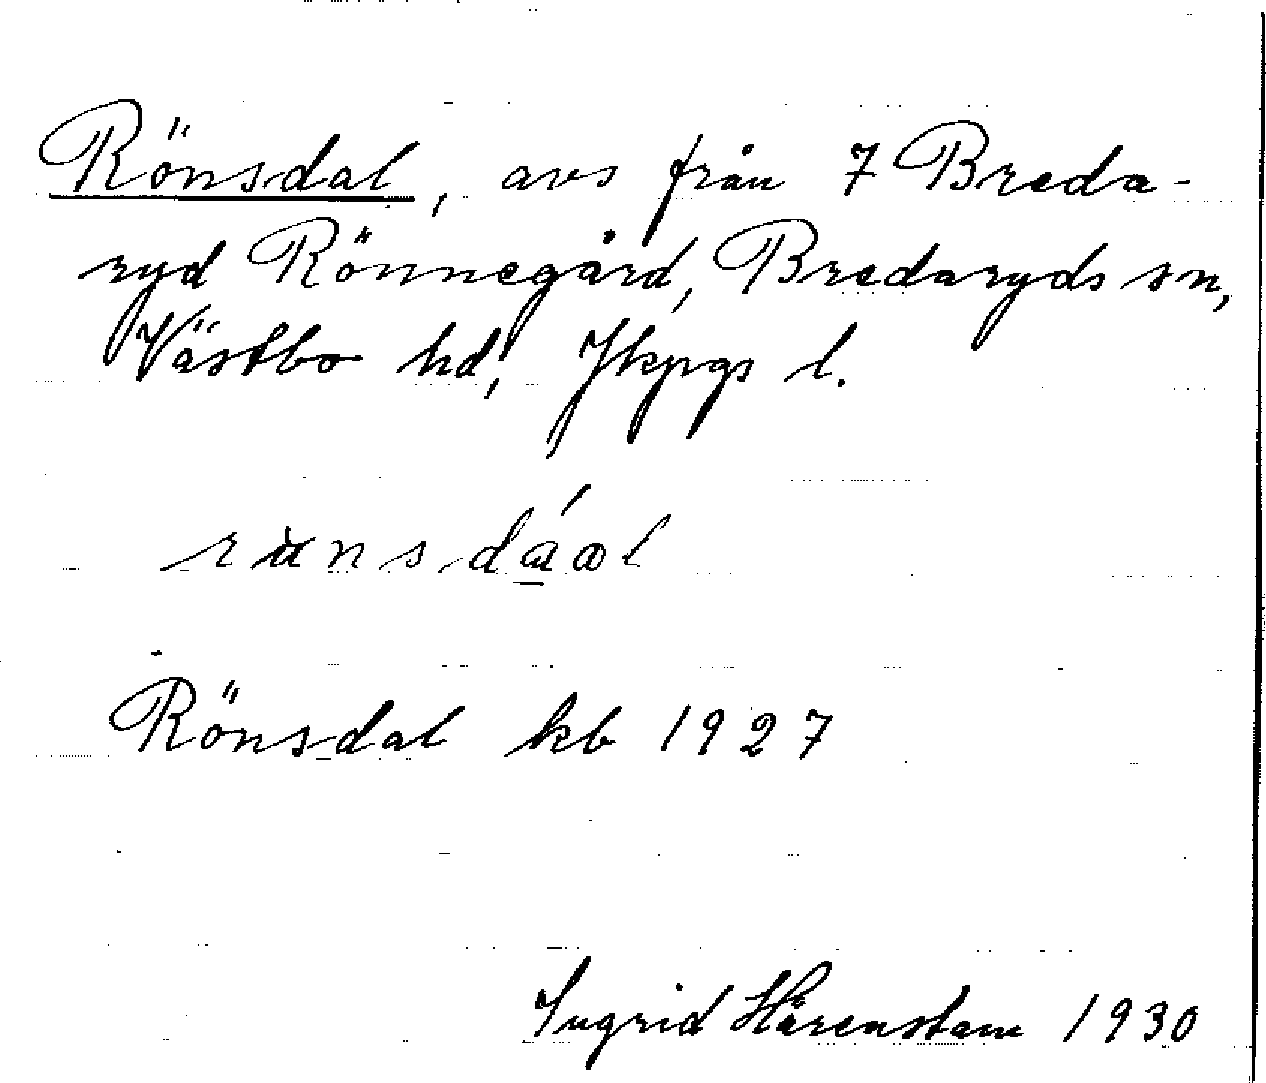 Rönsdal, avs från 7 Breda-
ryd Rönnegård, Bredaryds sn,
Västbo hd, Jkpgs l.
Rönsdal kb 1927
Ingrid Hårenstam 1930